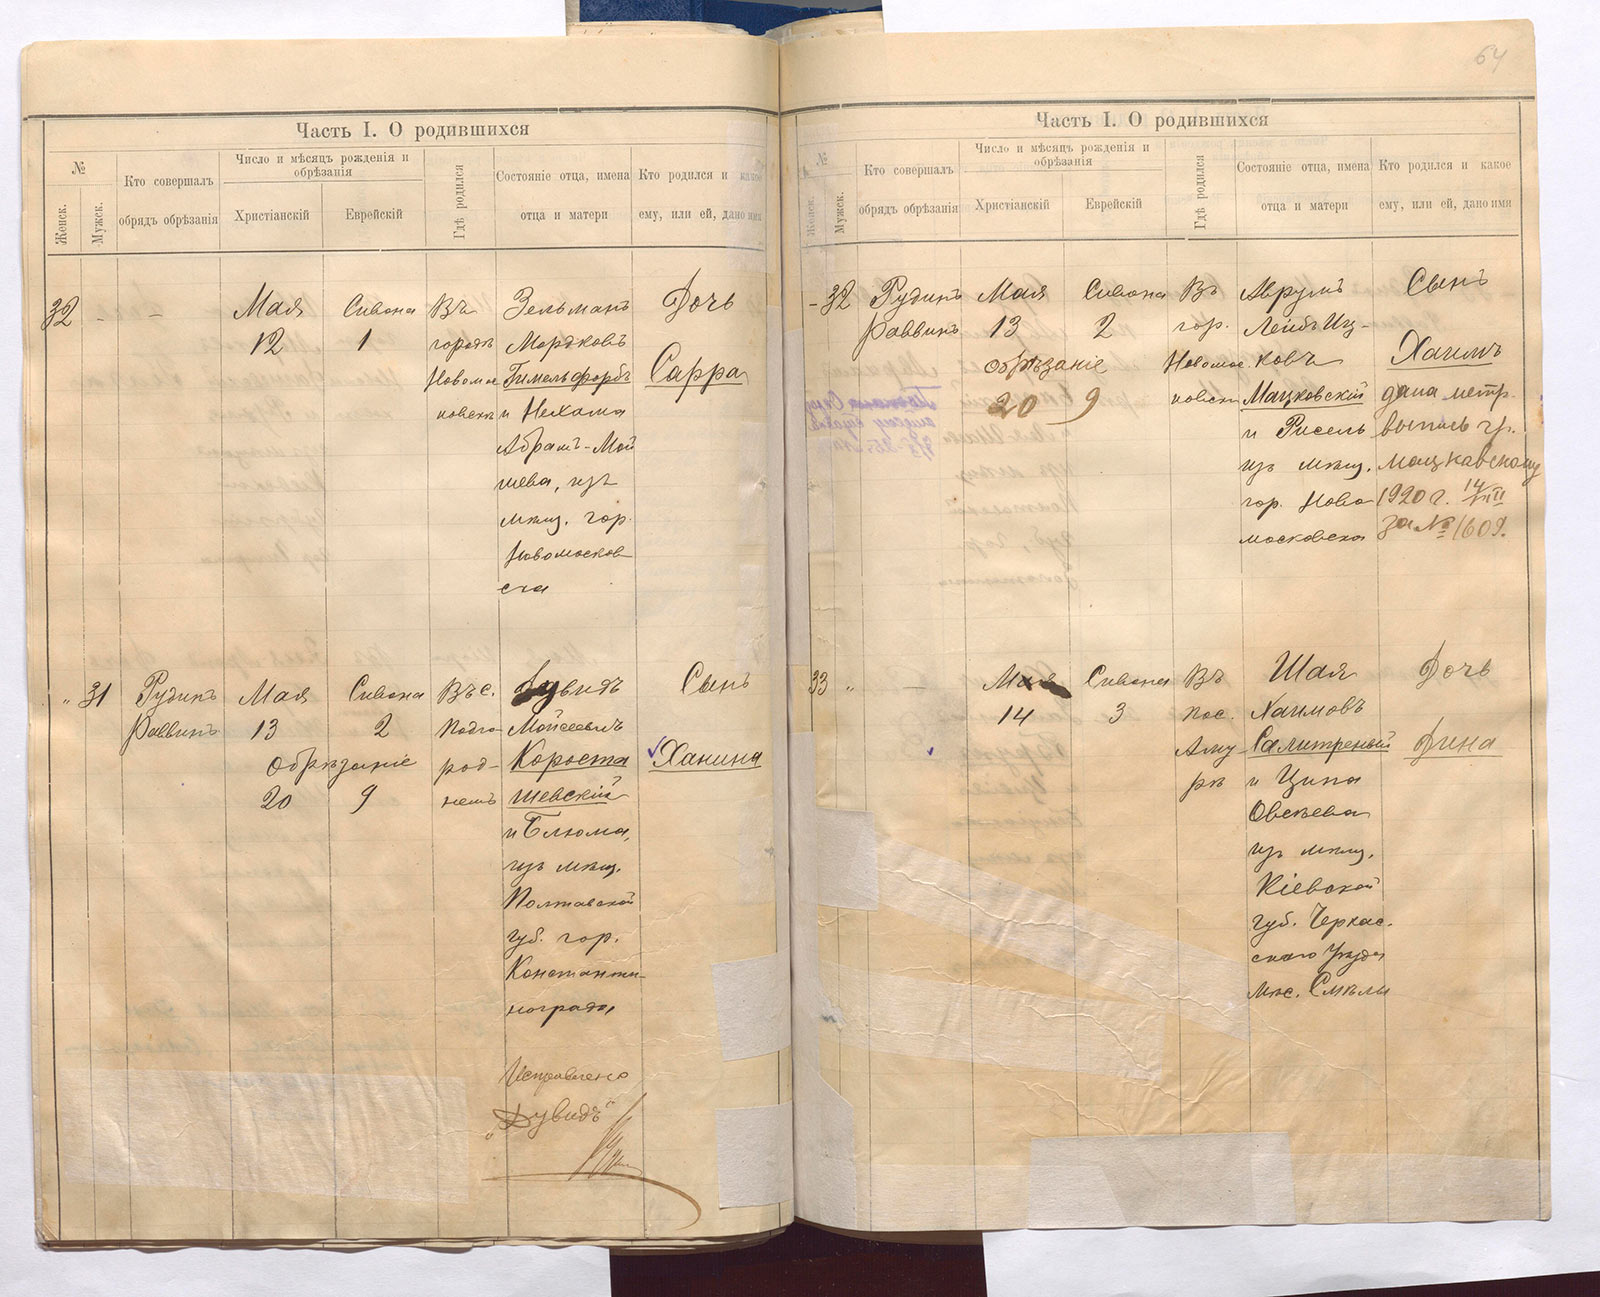 64
Часть I. О родившихся
№
Женск.
Мужск.
Кто совершалъ
обрядъ обрѣзанія
Число и мѣсяцъ рожденія и
обрѣзанія
Христіанскій
Еврейскій
Гдѣ родился
Состояніе отца, имена
отца и матери
Кто родился и какое
ему, или ей, дано имя
32 - -
Мая
12
Сивана
1
Въ
городѣ
Новомос
ковскѣ
Зельманъ
Мордковъ
Гимельфорбъ
и Нехама
Абрамъ-Мой
шева, изъ
мѣщ. гор.
Новомосков
ска
Дочь
Сарра
" 31
Рудинъ
Раввинъ
Мая
13
Сивана
2
Обрѣзаніе
20 9
Въ с.
Подго
род-
немъ
Дувидъ
Мойсеевъ
Короста
шевскій
и Блюма,
изъ мѣщ.
Полтавской
губ. гор.
Константи-
нограда,
Исправлено
„Дувидъ“
Сынъ
Ханина
Часть I. О родившихся
№
Женск.
Мужск.
Кто совершалъ
обрядъ обрѣзанія
Число и мѣсяцъ рожденія и
обрѣзанія
Христіанскій
Еврейскій
Гдѣ родился
Состояніе отца, имена
отца и матери
Кто родился и какое
ему, или ей, дано имя
- 32
Рудинъ
Раввинъ
Мая
13
Сивана
2
обрѣзаніе
20 9
Въ
гор.
Новомос
ковскѣ
Аврумъ
Лейбъ Иц-
ковъ
Мацковскій
и Рисель
изъ мѣщ.
гор. Ново
московска
Сынъ
Хаимъ
дана метр.
выпись гр.
Мацковскому
1920 г. 14/VII
за № 1609.
33 " -
Мая
14
Сивана
3
Въ
пос.
Аму
рѣ
Шая
Хаимовъ
Салитреный
и Ципа
Овсѣева
изъ мѣщ.
Кіевской
губ. Черкас-
скаго Уѣзда
мѣс. Смѣлы
Дочь
Дина